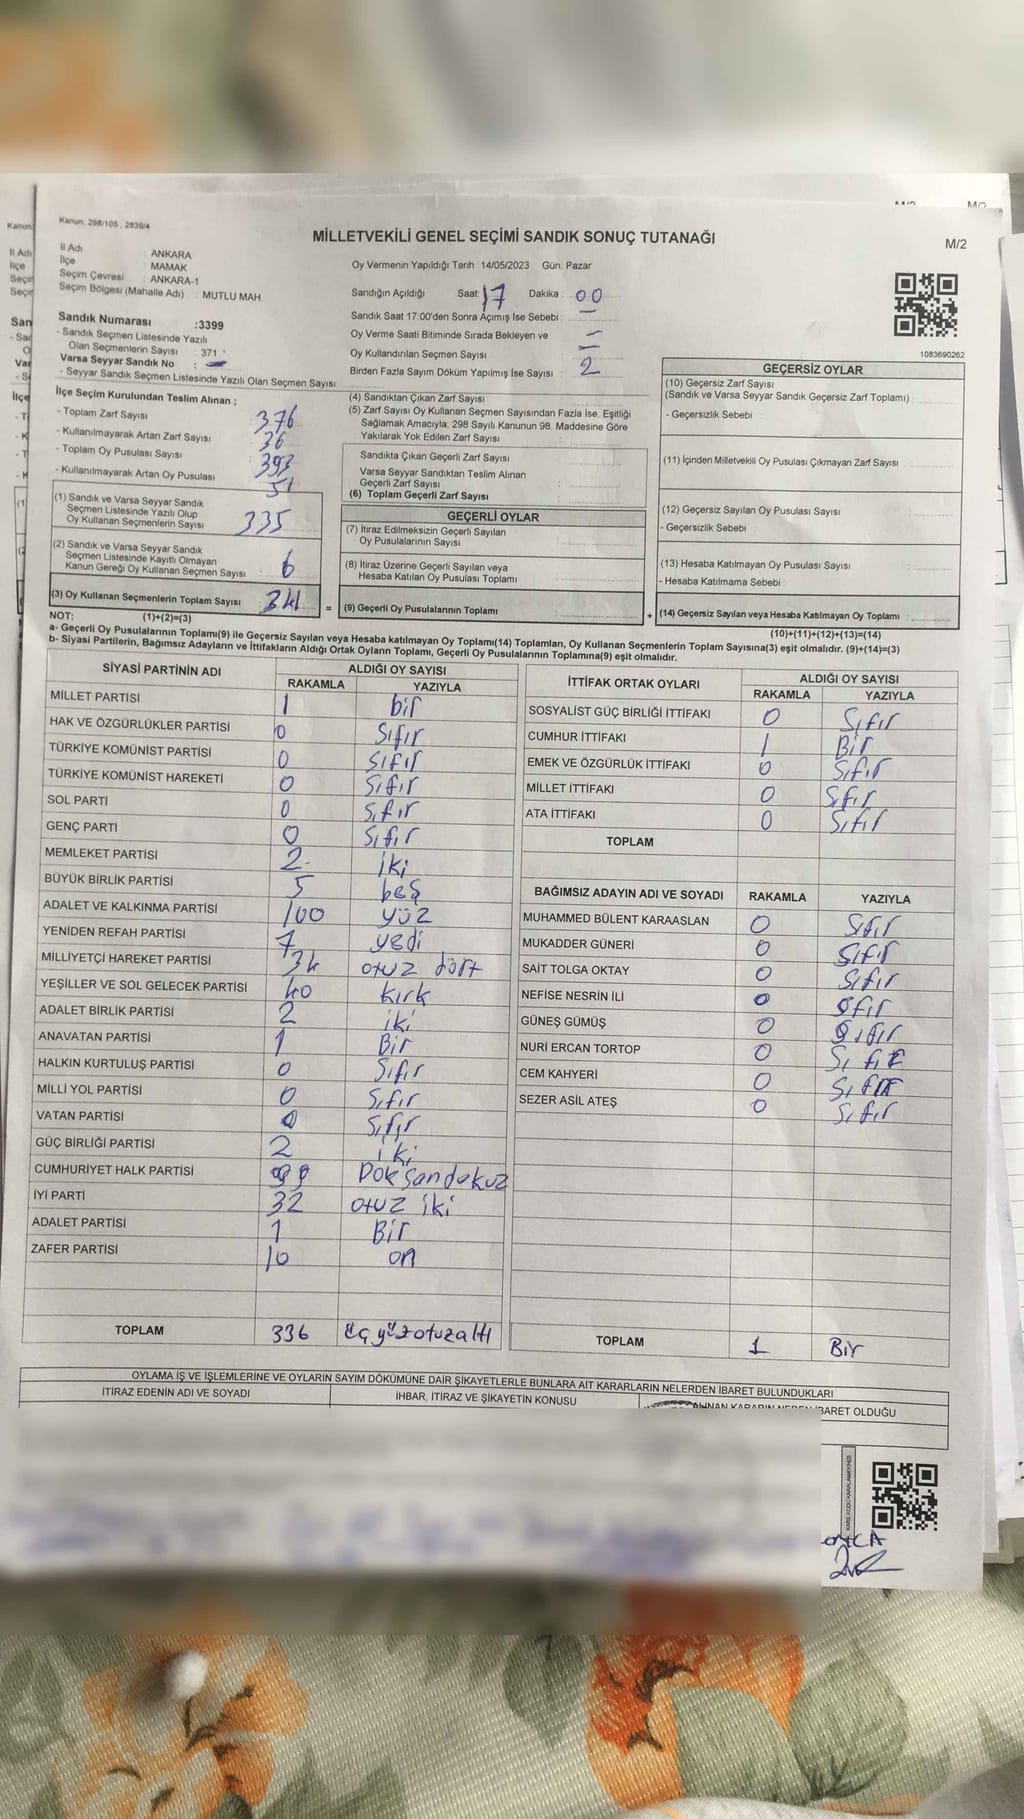 Kanun: 298/105 , 2839/4
MİLLETVEKİLİ GENEL SEÇİMİ SANDIK SONUÇ TUTANAĞI
M/2
İl Adı : ANKARA
İlçe : MAMAK
Seçim Çevresi : ANKARA-1
Seçim Bölgesi (Mahalle Adı) : MUTLU MAH.
Sandık Numarası :3399
- Sandık Seçmen Listesinde Yazılı
Olan Seçmenlerin Sayısı : 371
Varsa Seyyar Sandık No : -
- Seyyar Sandık Seçmen Listesinde Yazılı Olan Seçmen Sayısı :
Oy Vermenin Yapıldığı Tarih 14/05/2023 Gün: Pazar
Sandığın Açıldığı Saat: 17 Dakika : 00
Sandık Saat 17:00'den Sonra Açımış İse Sebebi : -
Oy Verme Saati Bitiminde Sırada Bekleyen ve : -
Oy Kullandırılan Seçmen Sayısı : -
Birden Fazla Sayım Döküm Yapılmış İse Sayısı : 2
1083690262
İlçe Seçim Kurulundan Teslim Alınan ;
- Toplam Zarf Sayısı : 376
- Kullanılmayarak Artan Zarf Sayısı : 36
- Toplam Oy Pusulası Sayısı : 393
- Kullanılmayarak Artan Oy Pusulası : 51
(1) Sandık ve Varsa Seyyar Sandık
Seçmen Listesinde Yazılı Olup
Oy Kullanan Seçmenlerin Sayısı : 335
(2) Sandık ve Varsa Seyyar Sandık
Seçmen Listesinde Kayıtlı Olmayan
Kanun Gereği Oy Kullanan Seçmen Sayısı : 6
(3) Oy Kullanan Seçmenlerin Toplam Sayısı : 341
(1)+(2)=(3)
(4) Sandıktan Çıkan Zarf Sayısı :
(5) Zarf Sayısı Oy Kullanan Seçmen Sayısından Fazla İse, Eşitliği
Sağlamak Amacıyla, 298 Sayılı Kanunun 98. Maddesine Göre
Yakılarak Yok Edilen Zarf Sayısı :
Sandıkta Çıkan Geçerli Zarf Sayısı :
Varsa Seyyar Sandıktan Teslim Alınan
Geçerli Zarf Sayısı :
(6) Toplam Geçerli Zarf Sayısı :
GEÇERLİ OYLAR
(7) İtiraz Edilmeksizin Geçerli Sayılan
Oy Pusulalarının Sayısı :
(8) İtiraz Üzerine Geçerli Sayılan veya
Hesaba Katılan Oy Pusulası Toplamı :
= (9) Geçerli Oy Pusulalarının Toplamı :
GEÇERSİZ OYLAR
(10) Geçersiz Zarf Sayısı
(Sandık ve Varsa Seyyar Sandık Geçersiz Zarf Toplamı) :
- Geçersizlik Sebebi :
(11) İçinden Milletvekili Oy Pusulası Çıkmayan Zarf Sayısı :
(12) Geçersiz Sayılan Oy Pusulası Sayısı :
- Geçersizlik Sebebi :
(13) Hesaba Katılmayan Oy Pusulası Sayısı :
- Hesaba Katılmama Sebebi :
+ (14) Geçersiz Sayılan veya Hesaba Katılmayan Oy Toplamı :
(10)+(11)+(12)+(13)=(14)
NOT:
a- Geçerli Oy Pusulalarının Toplamı(9) ile Geçersiz Sayılan veya Hesaba katılmayan Oy Toplamı(14) Toplamları, Oy Kullanan Seçmenlerin Toplam Sayısına(3) eşit olmalıdır. (9)+(14)=(3)
b- Siyasi Partilerin, Bağımsız Adayların ve İttifakların Aldığı Ortak Oyların Toplamı, Geçerli Oy Pusulalarının Toplamına(9) eşit olmalıdır.
SİYASİ PARTİNİN ADI ALDIĞI OY SAYISI
RAKAMLA YAZIYLA
MİLLET PARTİSİ 1 bir
HAK VE ÖZGÜRLÜKLER PARTİSİ 0 Sıfır
TÜRKİYE KOMÜNİST PARTİSİ 0 Sıfır
TÜRKİYE KOMÜNİST HAREKETİ 0 Sıfır
SOL PARTİ 0 Sıfır
GENÇ PARTİ 0 Sıfır
MEMLEKET PARTİSİ 2 iki
BÜYÜK BİRLİK PARTİSİ 5 beş
ADALET VE KALKINMA PARTİSİ 100 yüz
YENİDEN REFAH PARTİSİ 7 yedi
MİLLİYETÇİ HAREKET PARTİSİ 34 otuz dört
YEŞİLLER VE SOL GELECEK PARTİSİ 40 kırk
ADALET BİRLİK PARTİSİ 2 iki
ANAVATAN PARTİSİ 1 Bir
HALKIN KURTULUŞ PARTİSİ 0 Sıfır
MİLLİ YOL PARTİSİ 0 Sıfır
VATAN PARTİSİ 0 Sıfır
GÜÇ BİRLİĞİ PARTİSİ 2 iki
CUMHURİYET HALK PARTİSİ 99 Doksandokuz
İYİ PARTİ 32 otuz iki
ADALET PARTİSİ 1 Bir
ZAFER PARTİSİ 10 on
TOPLAM 336 üçyüzotuzaltı
İTTİFAK ORTAK OYLARI ALDIĞI OY SAYISI
RAKAMLA YAZIYLA
SOSYALİST GÜÇ BİRLİĞİ İTTİFAKI 0 Sıfır
CUMHUR İTTİFAKI 1 Bir
EMEK VE ÖZGÜRLÜK İTTİFAKI 0 Sıfır
MİLLET İTTİFAKI 0 Sıfır
ATA İTTİFAKI 0 Sıfır
TOPLAM
BAĞIMSIZ ADAYIN ADI VE SOYADI RAKAMLA YAZIYLA
MUHAMMED BÜLENT KARAASLAN 0 Sıfır
MUKADDER GÜNERİ 0 Sıfır
SAİT TOLGA OKTAY 0 Sıfır
NEFİSE NESRİN İLİ 0 Sıfır
GÜNEŞ GÜMÜŞ 0 Sıfır
NURİ ERCAN TORTOP 0 Sıfır
CEM KAHYERİ 0 Sıfır
SEZER ASİL ATEŞ 0 Sıfır
TOPLAM 1 Bir
OYLAMA İŞ VE İŞLEMLERİNE VE OYLARIN SAYIM DÖKÜMÜNE DAİR ŞİKAYETLERLE BUNLARA AİT KARARLARIN NELERDEN İBARET BULUNDUKLARI
İTİRAZ EDENİN ADI VE SOYADI İHBAR, İTİRAZ VE ŞİKAYETİN KONUSU ALINAN KARARIN NEDEN İBARET OLDUĞU
KARE KODU KARALAMAYINIZ!